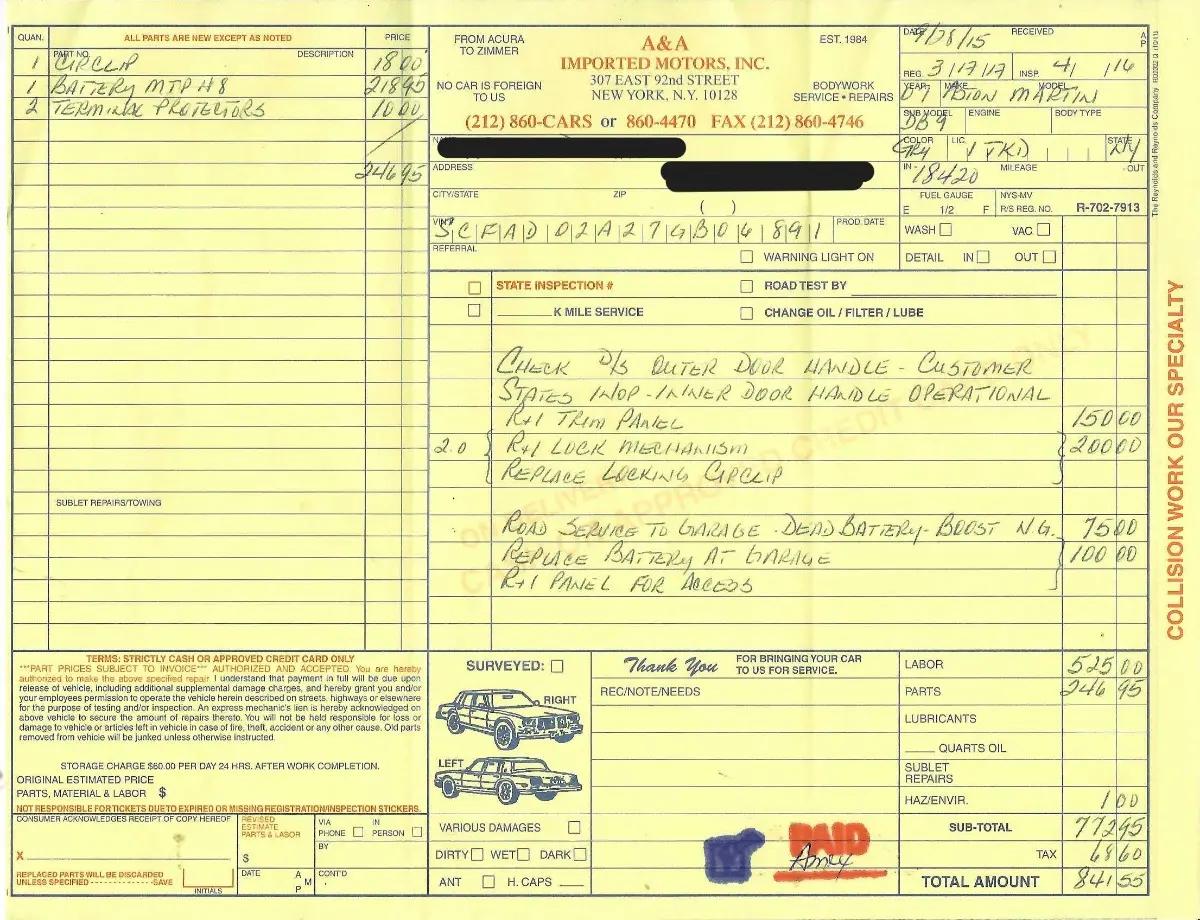 QUAN. ALL PARTS ARE NEW EXCEPT AS NOTED PRICE
PART NO. DESCRIPTION
1 CIRCLIP 18 00
1 BATTERY MTP H8 218 95
2 TERMINAL PROTECTORS 10 00
246 95
SUBLET REPAIRS/TOWING
FROM ACURA TO ZIMMER
NO CAR IS FOREIGN TO US
A&A
IMPORTED MOTORS, INC.
307 EAST 92nd STREET
NEW YORK, N.Y. 10128
EST. 1984
BODYWORK
SERVICE • REPAIRS
(212) 860-CARS or 860-4470 FAX (212) 860-4746
NAME
ADDRESS
CITY/STATE ZIP
( )
VIN# SCFAD02A27GB06891 PROD. DATE
REFERRAL
WARNING LIGHT ON
DATE 9/28/15 RECEIVED A P
REG. 3/17/17 INSP. 4/ /16
YEAR 07 MAKE MODEL MARTIN
SUB MODEL DB9 ENGINE BODY TYPE
COLOR GRY LIC. STATE NY
IN - 18420 MILEAGE - OUT
FUEL GAUGE NYS-MV
E 1/2 F R/S REG. NO. R-702-7913
WASH VAC
DETAIL IN OUT
The Reynolds and Reynolds Company
STATE INSPECTION # ROAD TEST BY
K MILE SERVICE CHANGE OIL / FILTER / LUBE
CHECK D/S OUTER DOOR HANDLE - CUSTOMER
STATES INOP - INNER DOOR HANDLE OPERATIONAL
R+I TRIM PANEL 150 00
2.0 R+I LOCK MECHANISM 200 00
REPLACE LOCKING CIRCLIP
ROAD SERVICE TO GARAGE - DEAD BATTERY - BOOST N.G. 75 00
REPLACE BATTERY AT GARAGE 100 00
R+I PANEL FOR ACCESS
COLLISION WORK OUR SPECIALTY
TERMS: STRICTLY CASH OR APPROVED CREDIT CARD ONLY
***PART PRICES SUBJECT TO INVOICE*** AUTHORIZED AND ACCEPTED. You are hereby
authorized to make the above specified repair. I understand that payment in full will be due upon
release of vehicle, including additional supplemental damage charges, and hereby grant you and/or
your employees permission to operate the vehicle herein described on streets, highways or elsewhere
for the purpose of testing and/or inspection. An express mechanic's lien is hereby acknowledged on
above vehicle to secure the amount of repairs thereto. You will not be held responsible for loss or
damage to vehicle or articles left in vehicle in case of fire, theft, accident or any other cause. Old parts
removed from vehicle will be junked unless otherwise instructed.
STORAGE CHARGE $60.00 PER DAY 24 HRS. AFTER WORK COMPLETION.
ORIGINAL ESTIMATED PRICE
PARTS, MATERIAL & LABOR $
NOT RESPONSIBLE FOR TICKETS DUE TO EXPIRED OR MISSING REGISTRATION/INSPECTION STICKERS.
CONSUMER ACKNOWLEDGES RECEIPT OF COPY HEREOF
X
REPLACED PARTS WILL BE DISCARDED
UNLESS SPECIFIED - - - - - - - - - - - - -SAVE
INITIALS
REVISED ESTIMATE PARTS & LABOR
$
DATE A M P
VIA PHONE IN PERSON
BY
CONT'D
SURVEYED:
RIGHT
LEFT
VARIOUS DAMAGES
DIRTY WET DARK
ANT H. CAPS
Thank You FOR BRINGING YOUR CAR TO US FOR SERVICE.
REC/NOTE/NEEDS
PAID
Amex
LABOR 525 00
PARTS 246 95
LUBRICANTS
QUARTS OIL
SUBLET REPAIRS
HAZ/ENVIR. 1 00
SUB-TOTAL 772 95
TAX 68 60
TOTAL AMOUNT 841 55